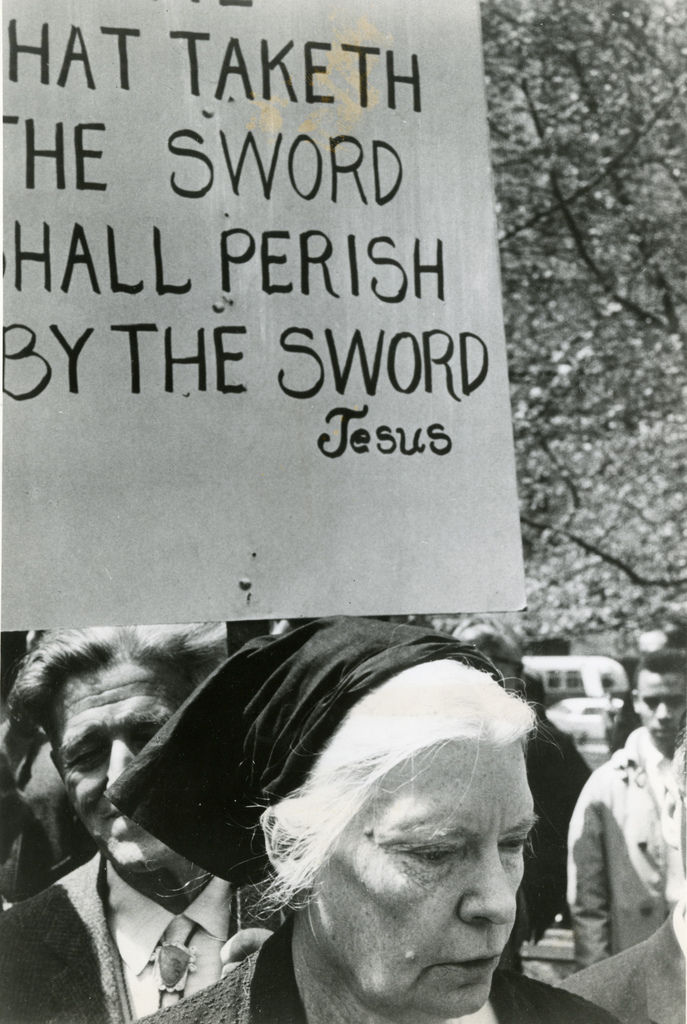 HAT TAKETH
THE SWORD
SHALL PERISH
BY THE SWORD
Jesus